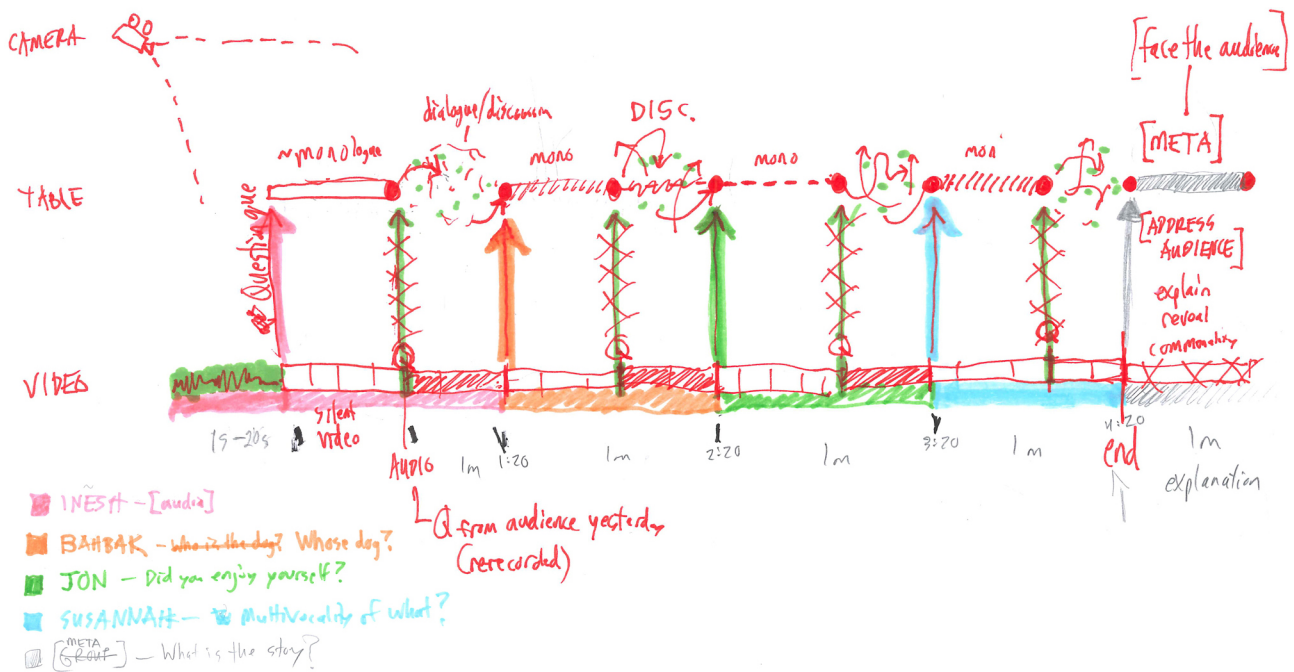 CAMERA
[face the audience]
dialogue/discussion
DISC.
[META]
~monologue
mono
mono
mon
TABLE
Question
que
[ADDRESS
AUDIENCE]
explain
reveal
commonality
VIDEO
15-20s
silent
video
AUDIO
1m
1:20
1m
2:20
1m
3:20
1m
4:20
end
1m
explanation
Q from audience yesterday
(rerecorded)
INESH - [audio]
BAHBAK - Who is the dog? Whose dog?
JON - Did you enjoy yourself?
SUSANNAH - Multivocality of what?
META
[GROUP] - What is the story?